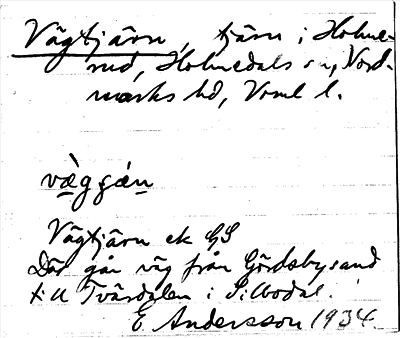 Vägtjärn, tjärn i Holme-
rud, Holmedals sn, Nord-
marks hd, Verml l.
væ̀gçæ̀n
Vägtjärn ek GS
Där går väg från Gördsbysand
till Tvärdalen i Silbodal.
E Andersson 1934